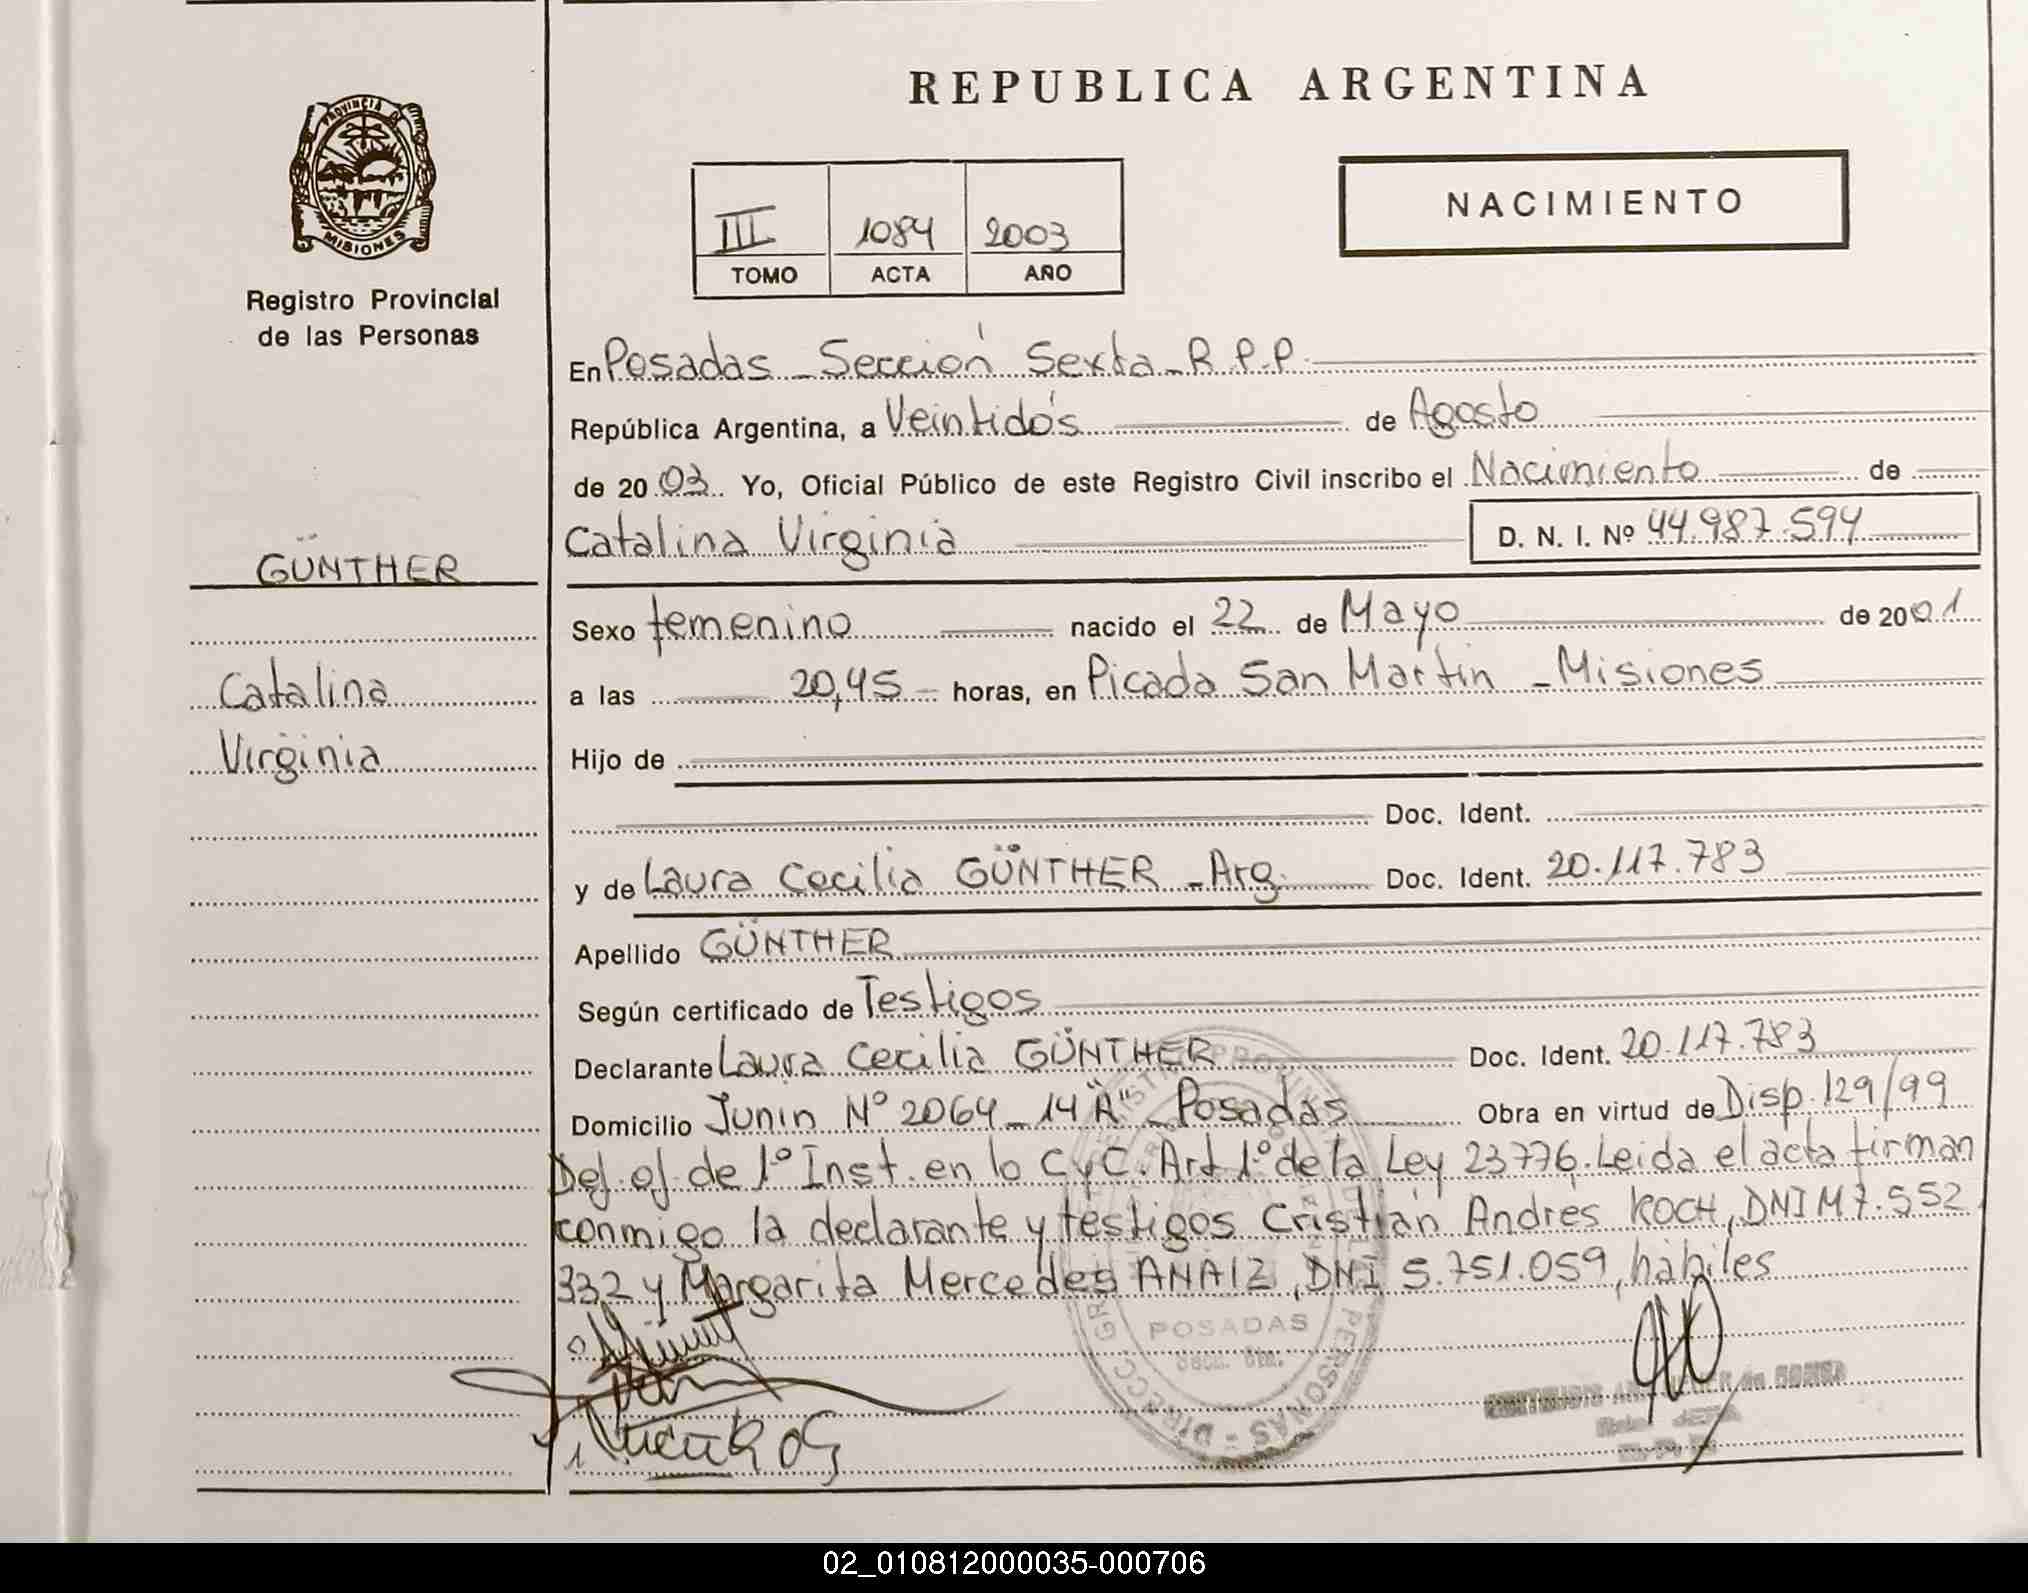 REPUBLICA ARGENTINA
PROVINCIA DE
MISIONES
Registro Provincial
de las Personas
III 1084 2003
TOMO ACTA AÑO
NACIMIENTO
En Posadas - Sección Sexta - R.P.P.
República Argentina, a Veintidós de Agosto
de 2003. Yo, Oficial Público de este Registro Civil inscribo el Nacimiento de
GÜNTHER
Catalina Virginia D. N. I. Nº 44.987.594
Sexo femenino nacido el 22 de Mayo de 2001
Catalina
a las 20,45 horas, en Picada San Martín - Misiones
Virginia
Hijo de
Doc. Ident.
y de Laura Cecilia GÜNTHER - Arg. Doc. Ident. 20.117.783
Apellido GÜNTHER
Según certificado de Testigos
Declarante Laura Cecilia GÜNTHER Doc. Ident. 20.117.783
Domicilio Junin Nº 2064 - 14 "A" - Posadas Obra en virtud de Disp. 129/99
Def. of. de 1º Inst. en lo CyC. Art 1º de la Ley 23776. Leida el acta firman
conmigo la declarante y testigos Cristian Andrés KOCH, DNI M 7.552
332 y Margarita Mercedes ANAIZ, DNI 5.751.059, hábiles
POSADAS
PERSONAS
02_010812000035-000706